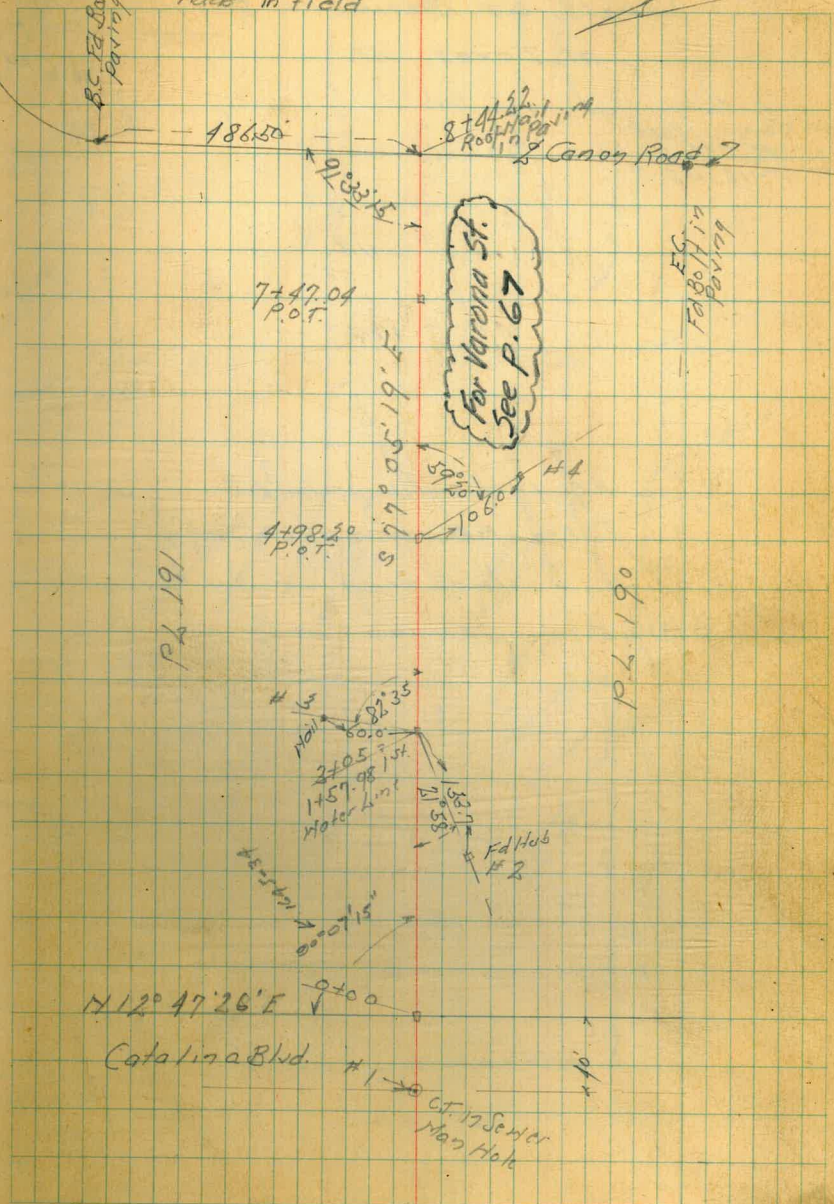 in field
B.C. Fd Bo
Paving
486.50
8+44.22
Root Nail
in Paving
Canon Road
91°33'15"
E.C.
Fd Bolt in
Paving
7+47.04
P.O.T.
For Varona St.
See P. 67
S 77° 05' 19" E
#4
109.0
4+98.20
P.O.T.
P.L. 191
P.L. 190
#3
Nail
82°35
60.0
3+05
1+57.98 1st.
Water Line
132.7
21°58'
Fd Hub
#2
90°07'15"
0+00
N 12° 47' 26" E
Catalina Blvd.
#1
40'
C.T. in Sewer
Man Hole